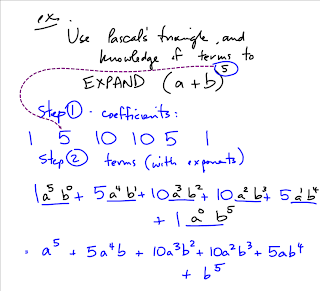 ex.
Use Pascal's triangle, and
knowledge of terms to
EXPAND (a + b)⁵
Step ① · coefficients:
1 5 10 10 5 1
Step ② terms (with exponents)
1a⁵b⁰ + 5a⁴b¹ + 10a³b² + 10a²b³ + 5a¹b⁴
+ 1a⁰b⁵
= a⁵ + 5a⁴b + 10a³b² + 10a²b³ + 5ab⁴
+ b⁵